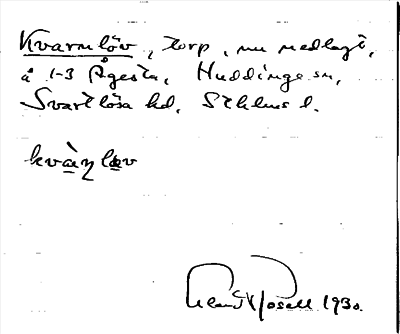 Kvarnlöv, torp, nu nedlagt,
å 1-3 Ågesta, Huddinge sn,
Svartlösa hd, Sthlms l.
kvà̱ɳlöv
1930.